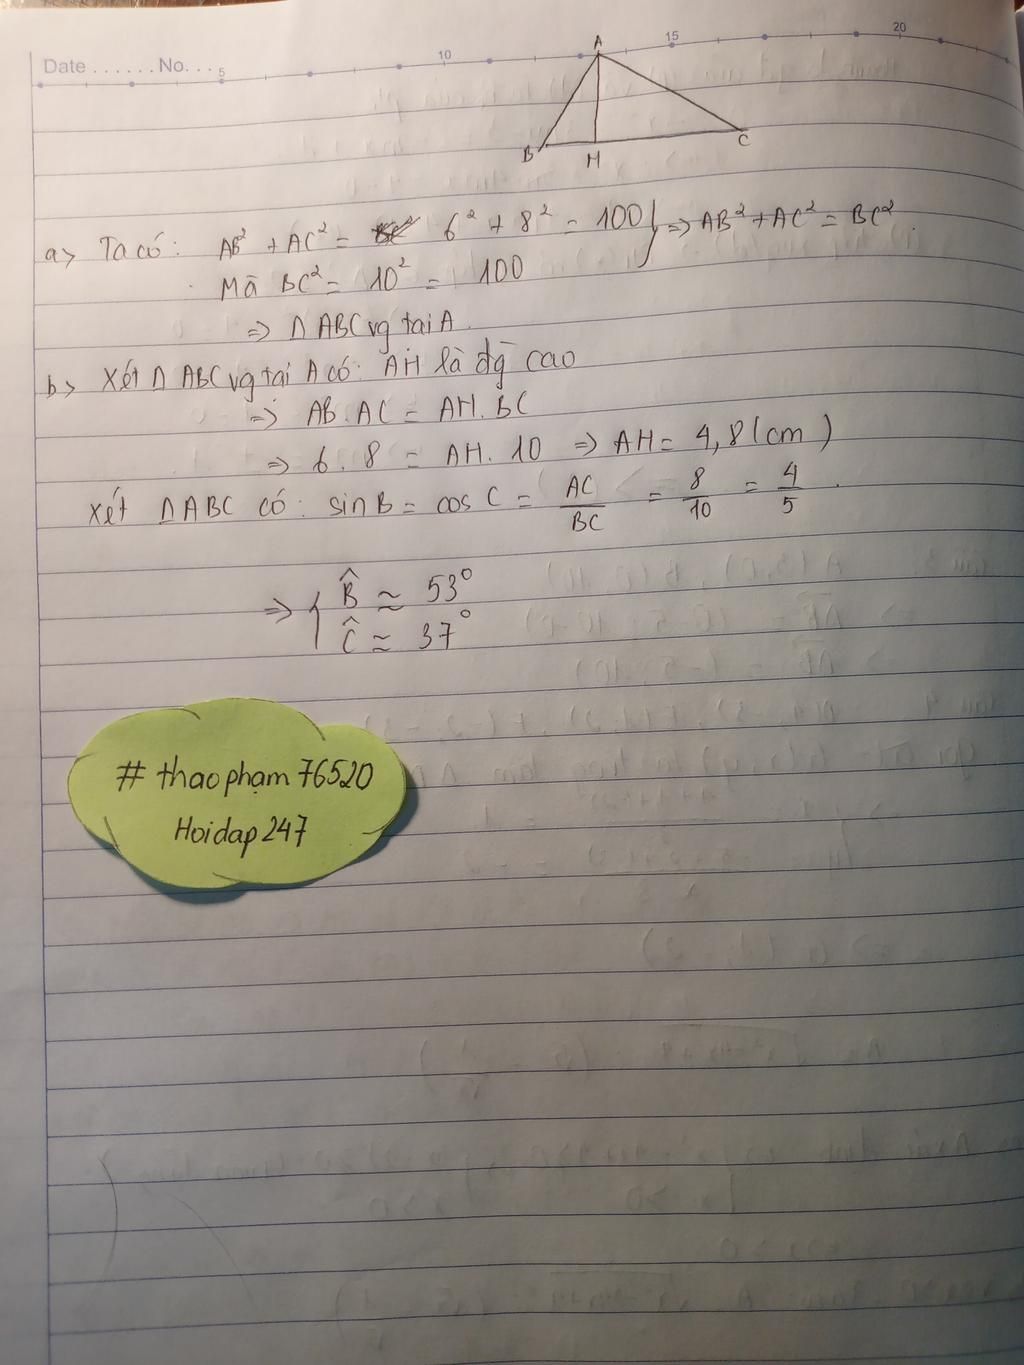 Date ...... No. ... 5 10 15 20
A
B H C
a> Ta có: AB² + AC² = 6² + 8² = 100 } => AB² + AC² = BC².
Mà BC² = 10² = 100
=> Δ ABC vg tại A.
b> Xét Δ ABC vg tại A có: AH là đg cao
=> AB. AC = AH. BC
=> 6. 8 = AH. 10 => AH = 4,8 (cm)
Xét Δ ABC có: sin B = cos C = AC/BC = 8/10 = 4/5.
=> { B̂ ≈ 53°
Ĉ ≈ 37°
# thaophạm76520
Hoidap247